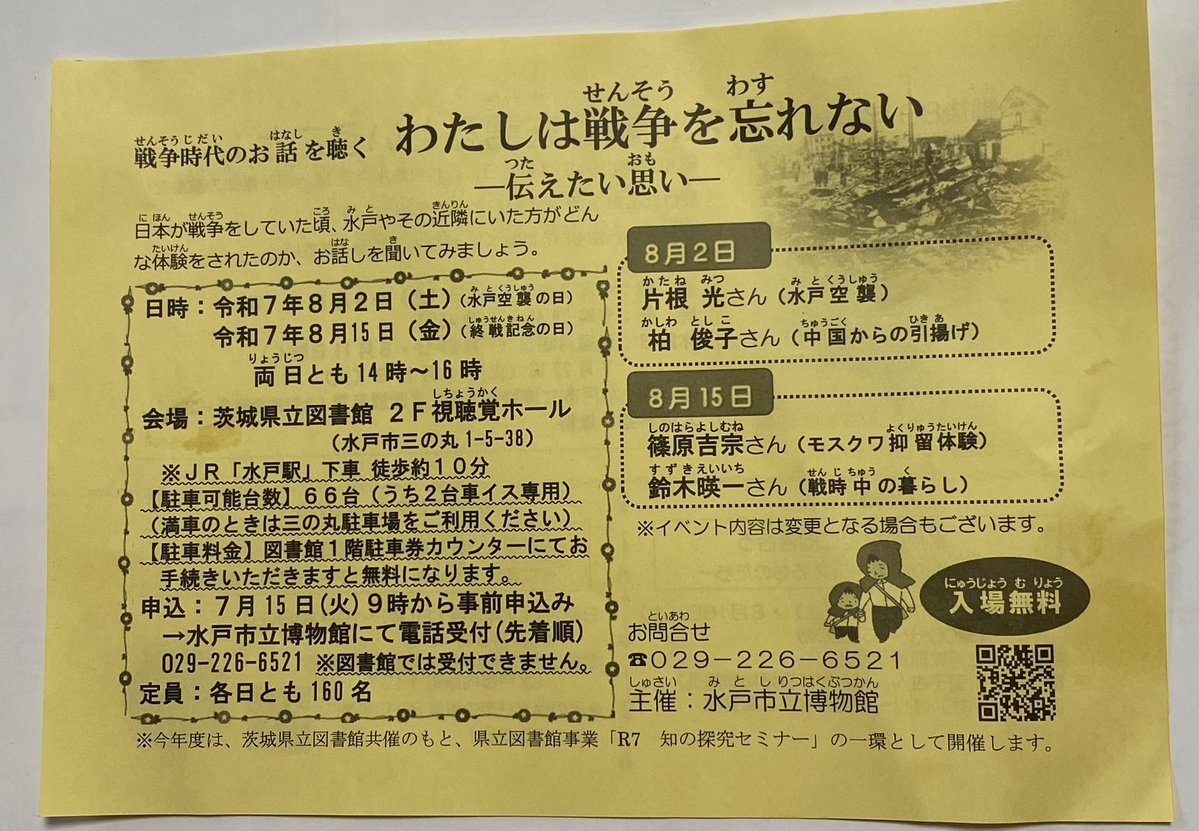 戦争時代のお話を聴く わたしは戦争を忘れない
―伝えたい思い―
日本が戦争をしていた頃、水戸やその近隣にいた方がどん
な体験をされたのか、お話しを聞いてみましょう。
日時：令和７年８月２日（土）（水戸空襲の日）
令和７年８月15日（金）（終戦記念の日）
両日とも14時～16時
会場：茨城県立図書館 ２Ｆ視聴覚ホール
（水戸市三の丸1-5-38）
※ＪＲ「水戸駅」下車 徒歩約１０分
【駐車可能台数】６６台（うち２台車イス専用）
（満車のときは三の丸駐車場をご利用ください）
【駐車料金】図書館１階駐車券カウンターにてお
手続きいただきますと無料になります。
申込：７月15日(火)９時から事前申込み
→水戸市立博物館にて電話受付(先着順)
029-226-6521 ※図書館では受付できません。
定員：各日とも160名
８月２日
片根 光さん（水戸空襲）
柏 俊子さん（中国からの引揚げ）
８月15日
篠原吉宗さん（モスクワ抑留体験）
鈴木暎一さん（戦時中の暮らし）
※イベント内容は変更となる場合もございます。
入場無料
お問合せ
☎０２９－２２６－６５２１
主催：水戸市立博物館
※今年度は、茨城県立図書館共催のもと、県立図書館事業「R7 知の探究セミナー」の一環として開催します。